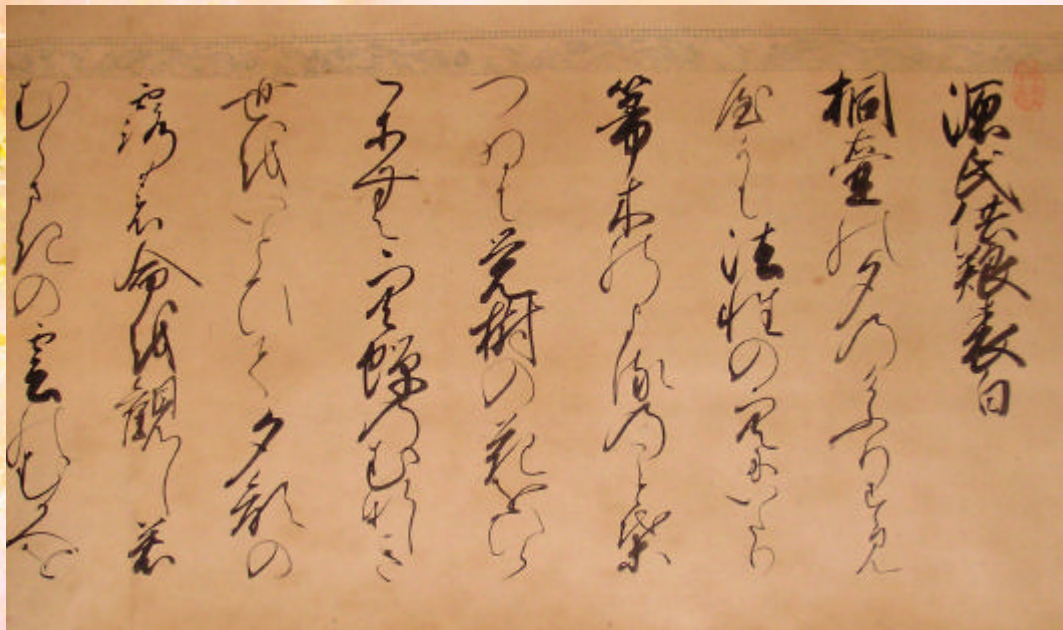 源氏供養表白
桐壺の夕のけふりすみ
やかに法性の空にいたり
箒木のよるのこと葉
つゐに覚樹の花をひら
空蝉のむなしき
世をいとひて夕顔の
露の命を観し若
むらさきの雲のむかへを